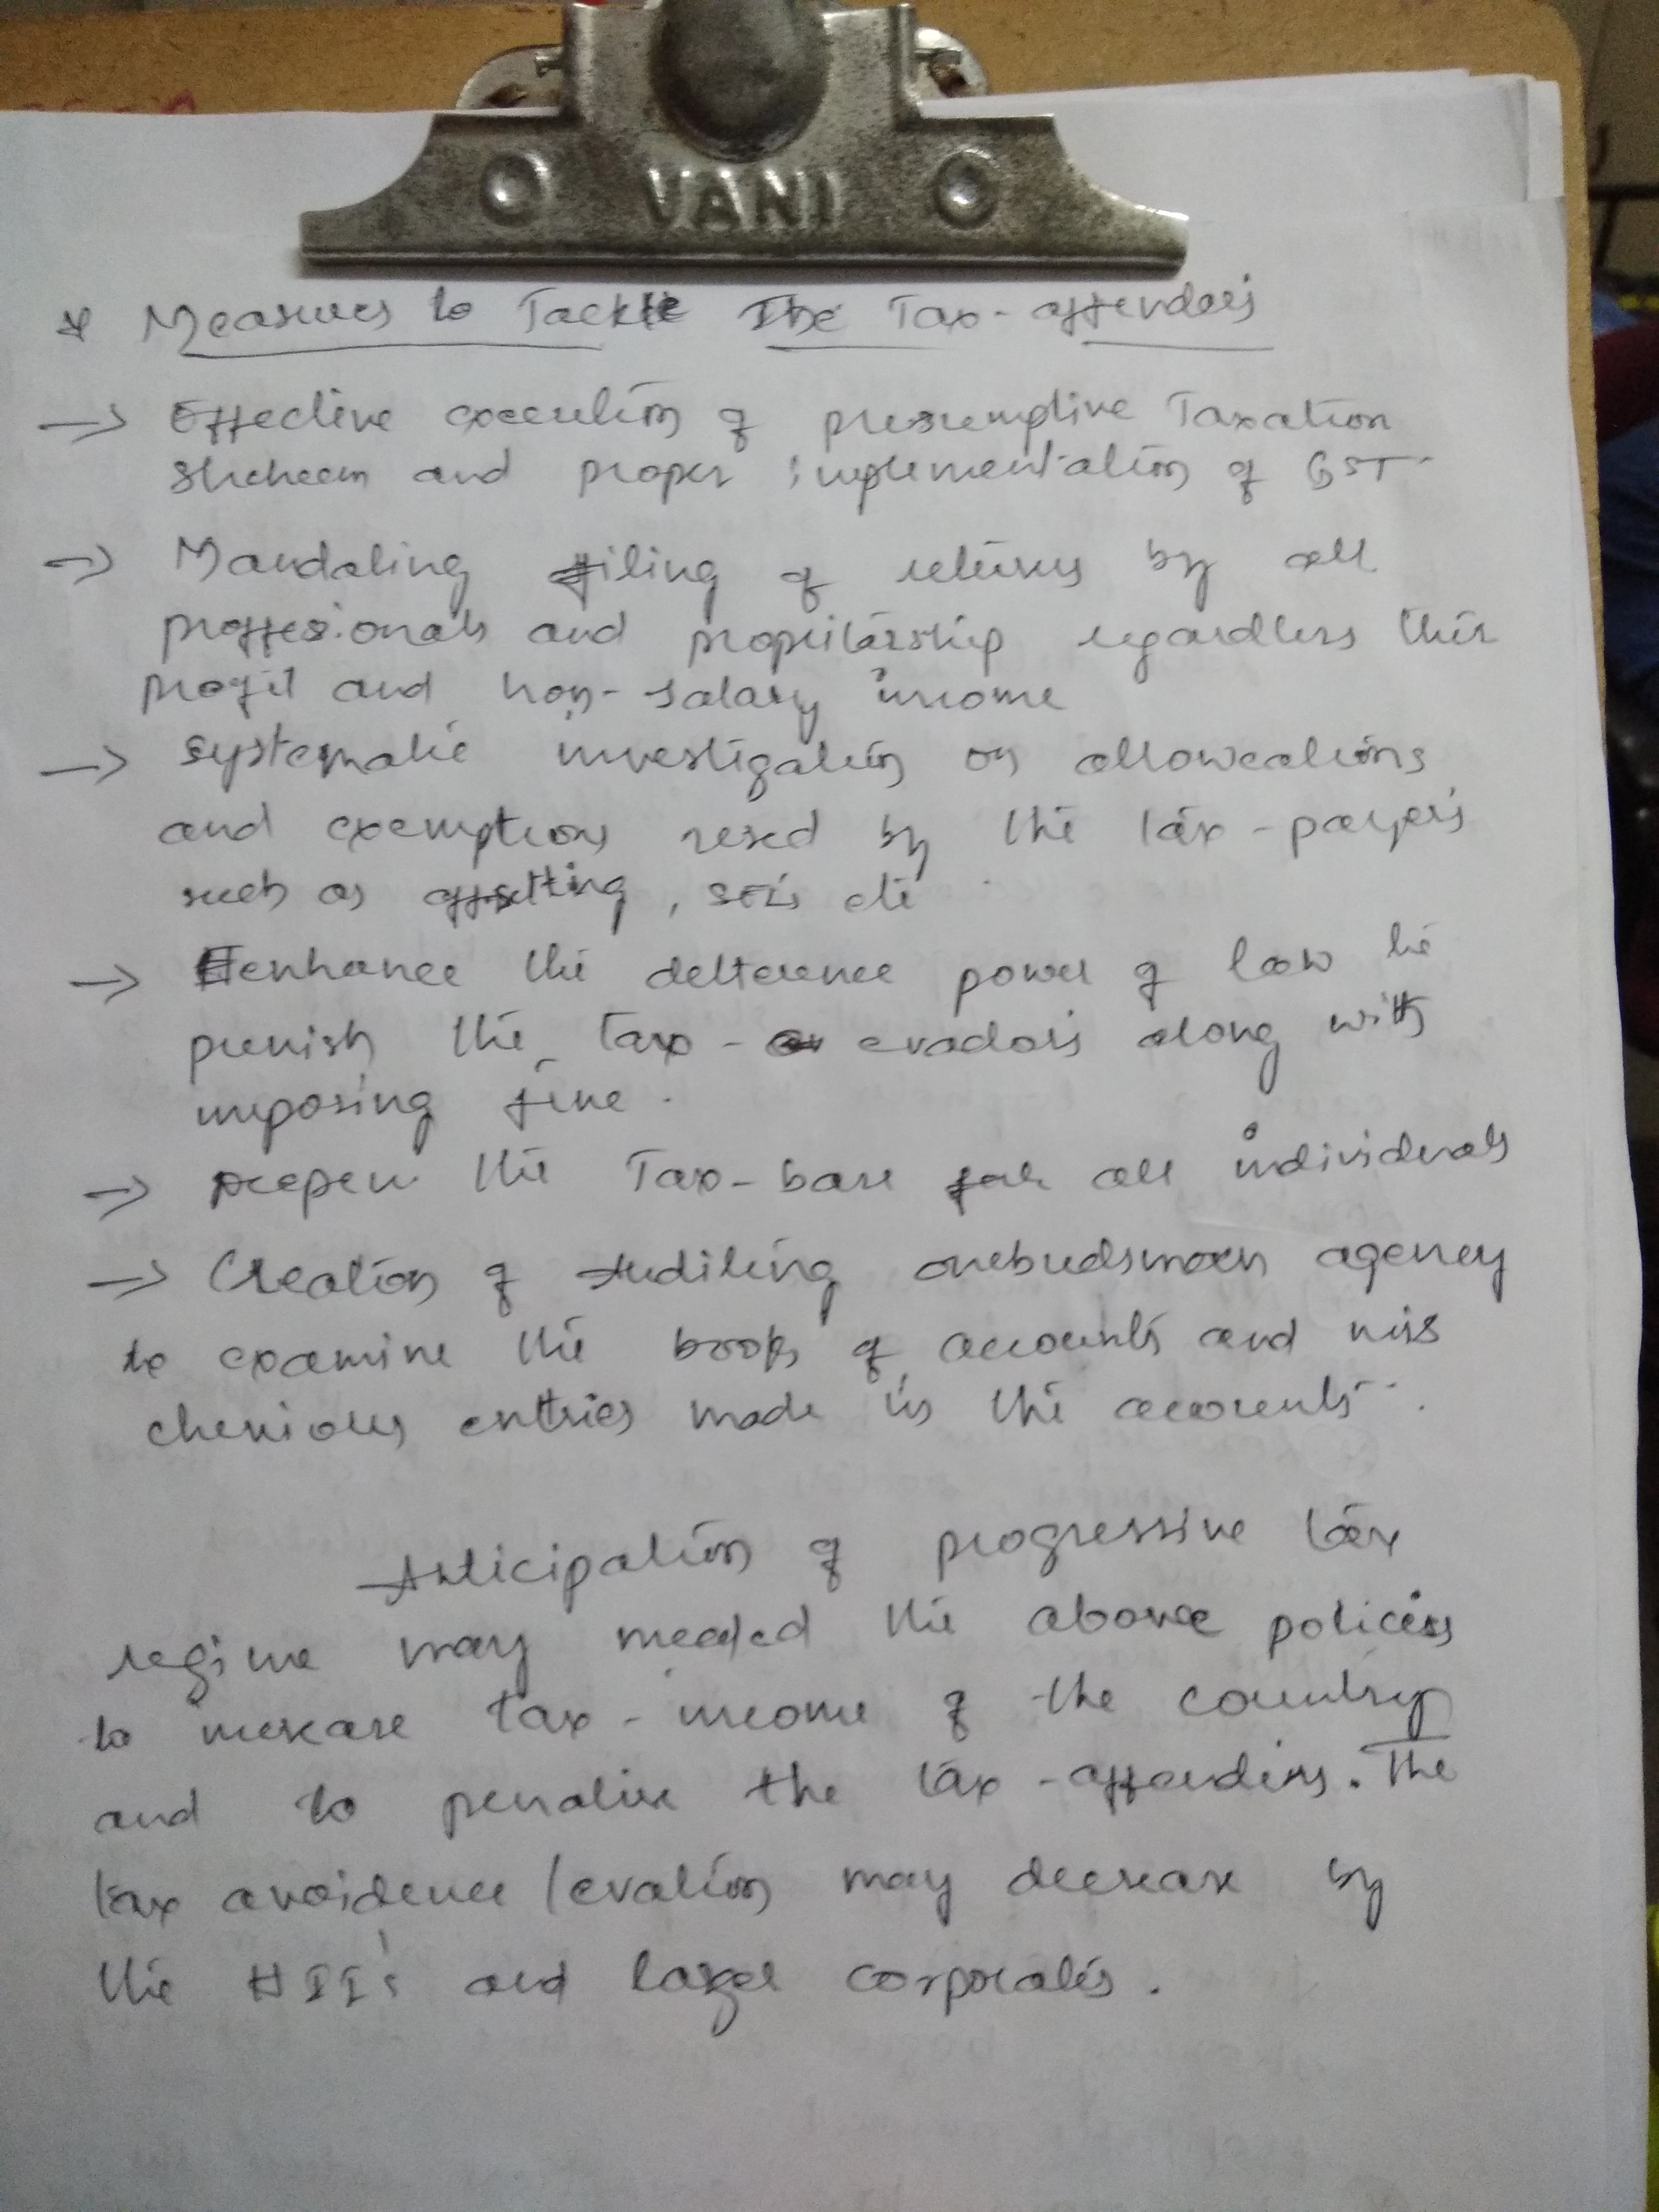 VANI
* Measures to Tackle The Tax-offendors
→ Effective execution of presumptive Taxation
and proper implementation of GST
→ Mandating filing of returns by all
proffesionals and regardless their
profit and non-salary income
→ systematic investigation on
and exemptions used by the tax-payers
such as offsetting, etc
→ enhance the detterence power of law to
punish the tax- evadors along with
imposing fine.
→ Deepen the Tax-base for all individuals
→ Creation of Auditing agency
to examine the books of accounts and mis
chevious entries made in the accounts.
Anticipation of progressive tax
regime may needed the above policies
to increase tax-income of the country
and to penalise the tax-offenders. The
tax avoidence/evation may decrease by
the HII's and larger corporates.